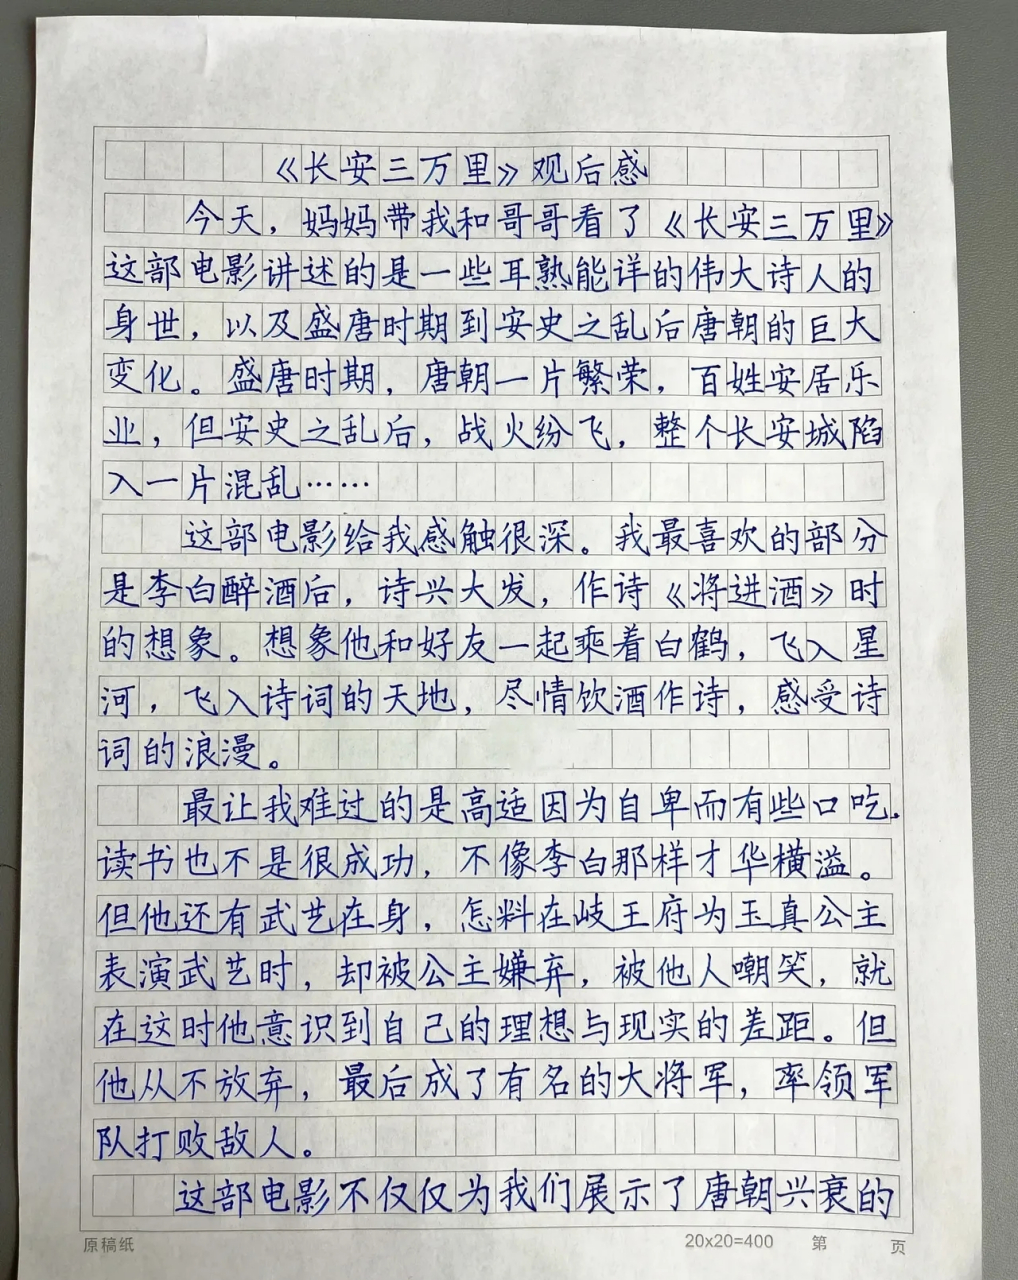 《长安三万里》观后感
今天，妈妈带我和哥哥看了《长安三万里》
这部电影讲述的是一些耳熟能详的伟大诗人的
身世，以及盛唐时期到安史之乱后唐朝的巨大
变化。盛唐时期，唐朝一片繁荣，百姓安居乐
业，但安史之乱后，战火纷飞，整个长安城陷
入一片混乱……
这部电影给我感触很深。我最喜欢的部分
是李白醉酒后，诗兴大发，作诗《将进酒》时
的想象。想象他和好友一起乘着白鹤，飞入星
河，飞入诗词的天地，尽情饮酒作诗，感受诗
词的浪漫。
最让我难过的是高适因为自卑而有些口吃.
读书也不是很成功，不像李白那样才华横溢。
但他还有武艺在身，怎料在岐王府为玉真公主
表演武艺时，却被公主嫌弃，被他人嘲笑，就
在这时他意识到自己的理想与现实的差距。但
他从不放弃，最后成了有名的大将军，率领军
队打败敌人。
这部电影不仅仅为我们展示了唐朝兴衰的
原稿纸 20x20=400 第 页